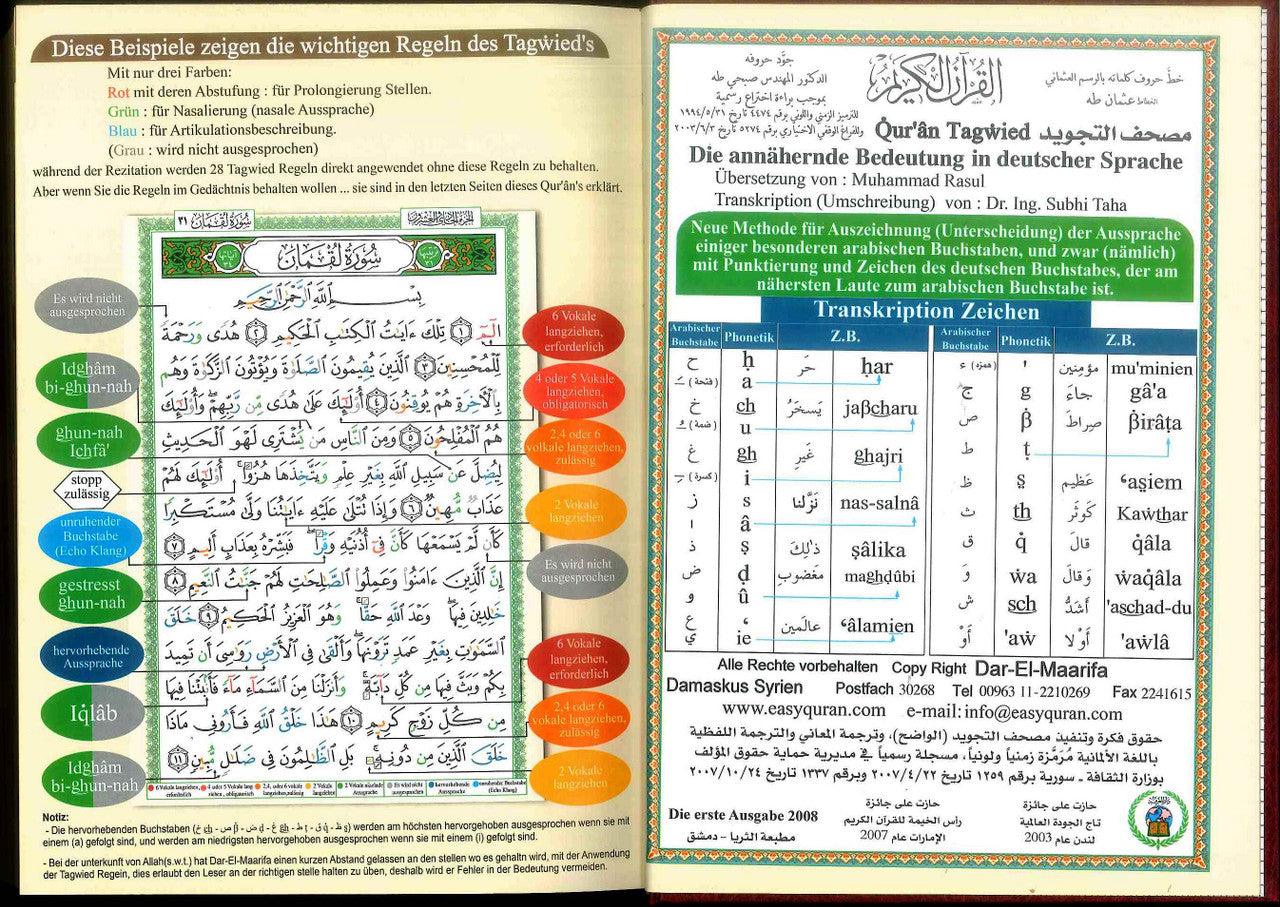 Diese Beispiele zeigen die wichtigen Regeln des Tagẇied's
Mit nur drei Farben:
Rot mit deren Abstufung : für Prolongierung Stellen.
Grün : für Nasalierung (nasale Aussprache)
Blau : für Artikulationsbeschreibung.
(Grau : wird nicht ausgesprochen)
während der Rezitation werden 28 Tagwied Regeln direkt angewendet ohne diese Regeln zu behalten.
Aber wenn Sie die Regeln im Gedächtnis behalten wollen ... sie sind in den letzten Seiten dieses Qur'ân's erklärt.
سُورَةُ لُقْمَان ٣١
سُورَةُ لُقْمَان
بِسْمِ اللَّهِ الرَّحْمَٰنِ الرَّحِيمِ
الٓمٓ ١ تِلْكَ ءَايَٰتُ الْكِتَٰبِ الْحَكِيمِ ٢ هُدًى وَرَحْمَةً
لِّلْمُحْسِنِينَ ٣ الَّذِينَ يُقِيمُونَ الصَّلَوٰةَ وَيُؤْتُونَ الزَّكَوٰةَ وَهُم
بِالْأَخِرَةِ هُمْ يُوقِنُونَ ٤ أُوْلَٰٓئِكَ عَلَىٰ هُدًى مِّن رَّبِّهِمْ وَأُوْلَٰٓئِكَ
هُمُ الْمُفْلِحُونَ ٥ وَمِنَ النَّاسِ مَن يَشْتَرِى لَهْوَ الْحَدِيثِ
لِيُضِلَّ عَن سَبِيلِ اللَّهِ بِغَيْرِ عِلْمٍ وَيَتَّخِذَهَا هُزُوًا أُوْلَٰٓئِكَ لَهُمْ
عَذَابٌ مُّهِينٌ ٦ وَإِذَا تُتْلَىٰ عَلَيْهِ ءَايَٰتُنَا وَلَّىٰ مُسْتَكْبِرًا
كَأَن لَّمْ يَسْمَعْهَا كَأَنَّ فِىٓ أُذُنَيْهِ وَقْرًا فَبَشِّرْهُ بِعَذَابٍ أَلِيمٍ ٧
إِنَّ الَّذِينَ ءَامَنُوا وَعَمِلُوا الصَّٰلِحَٰتِ لَهُمْ جَنَّٰتُ النَّعِيمِ ٨
خَٰلِدِينَ فِيهَا وَعْدَ اللَّهِ حَقًّا وَهُوَ الْعَزِيزُ الْحَكِيمُ ٩ خَلَقَ
السَّمَٰوَٰتِ بِغَيْرِ عَمَدٍ تَرَوْنَهَا وَأَلْقَىٰ فِى الْأَرْضِ رَوَٰسِىَ أَن تَمِيدَ
بِكُمْ وَبَثَّ فِيهَا مِن كُلِّ دَآبَّةٍ وَأَنزَلْنَا مِنَ السَّمَآءِ مَآءً فَأَنۢبَتْنَا فِيهَا
مِن كُلِّ زَوْجٍ كَرِيمٍ ١٠ هَٰذَا خَلْقُ اللَّهِ فَأَرُونِى مَاذَا
خَلَقَ الَّذِينَ مِن دُونِهِ بَلِ الظَّٰلِمُونَ فِى ضَلَٰلٍ مُّبِينٍ ١١
Es wird nicht
ausgesprochen
Idghâm
bi-ghun-nah
ghun-nah
Ichfâ'
stopp
zulässig
unruhender
Buchstabe
(Echo Klang)
gestresst
ghun-nah
hervorhebende
Aussprache
Iq̇lâb
Idghâm
bi-ghun-nah
6 Vokale
langziehen,
erforderlich
4 oder 5 Vokale
langziehen,
obligatorisch
2,4 oder 6
volkale langziehen,
zulässig
2 Vokale
langziehen
Es wird nicht
ausgesprochen
6 Vokale
langziehen,
erforderlich
2,4 oder 6
vokale langziehen,
zulässig
2 Vokale
langziehen
Notiz:
- Die hervorhebenden Buchstaben werden am höchsten hervorgehoben ausgesprochen wenn sie mit
einem (a) gefolgt sind, und werden am niedrigsten hervorgehoben ausgesprochen wenn sie mit einem (i) gefolgt sind.
- Bei der unterkunft von Allah(s.w.t.) hat Dar-El-Maarifa einen kurzen Abstand gelassen an den stellen wo es gehaltn wird, mit der Anwendung
der Tagwied Regein, dies erlaubt den Leser an der richtigen stelle halten zu üben, deshalb wird er Fehler in der Bedeutung vermeiden.
القرآن الكريم
جوَّد حروفه
الدكتور المهندس صبحي طه
بموجب براءة اختراع رسمية
للترميز الزمني واللوني برقم ٤٤٧٤ تاريخ ١٩٩٤/٥/٣١
وللفراغ الوقفي الاختياري برقم ٥٢٧٤ تاريخ ٢٠٠٣/٦/٣
خطَّ حروف كلماته بالرسم العثماني
الخطاط عثمان طه
Q̇ur'ân Tagẇied مصحف التجويد
Die annähernde Bedeutung in deutscher Sprache
Übersetzung von : Muhammad Rasul
Transkription (Umschreibung) von : Dr. Ing. Subhi Taha
Neue Methode für Auszeichnung (Unterscheidung) der Aussprache
einiger besonderen arabischen Buchstaben, und zwar (nämlich)
mit Punktierung und Zeichen des deutschen Buchstabes, der am
nähersten Laute zum arabischen Buchstabe ist.
Transkription Zeichen
Arabischer Buchstabe Phonetik Z.B.
ح ḥ حَرَ ḥar
(فتحة) a
خ ch يَسخَرُ jaβcharu
(ضمة) u
غ gh غير ghajri
(كسرة) i
ز s نَزَّلنا nas-salnâ
ا â
ذ ṣ ذٰلِكَ ṣâlika
ض ḍ مغضوب maghḍûbi
و û
ع ʻ عالمين ʻâlamien
ي ie
Arabischer Buchstabe Phonetik Z.B.
(همزة) ء ' مؤمنين mu'minien
ج g جاءَ gâ'a
ص β̇ صِراطَ β̇irâṭa
ط ṭ
ظ ş̣ عَظِيم ʻaş̣iem
ث th كَوثَر Kaẇthar
ق q̇ قالَ q̇âla
وَ ẇa وَقالَ ẇaq̇âla
ش sch أَشَدُّ 'aschad-du
أَوْ 'aẇ أَوْلا 'aẇlâ
Alle Rechte vorbehalten Copy Right Dar-El-Maarifa
Damaskus Syrien Postfach 30268 Tel 00963 11-2210269 Fax 2241615
www.easyquran.com e-mail:info@easyquran.com
حقوق فكرة وتنفيذ مصحف التجويد (الواضح)، وترجمة المعاني والترجمة اللفظية
باللغة الألمانية مُرَمَّزة زمنياً ولونياً، مسجلة رسمياً في مديرية حماية حقوق المؤلف
بوزارة الثقافة - سورية برقم ١٢٥٩ تاريخ ٢٠٠٧/٤/٢٢ وبرقم ١٣٣٧ تاريخ ٢٠٠٧/١٠/٢٤
Die erste Ausgabe 2008
مطبعة الثريا - دمشق
حازت على جائزة
رأس الخيمة للقرآن الكريم
الإمارات عام 2007
حازت على جائزة
تاج الجودة العالمية
لندن عام 2003